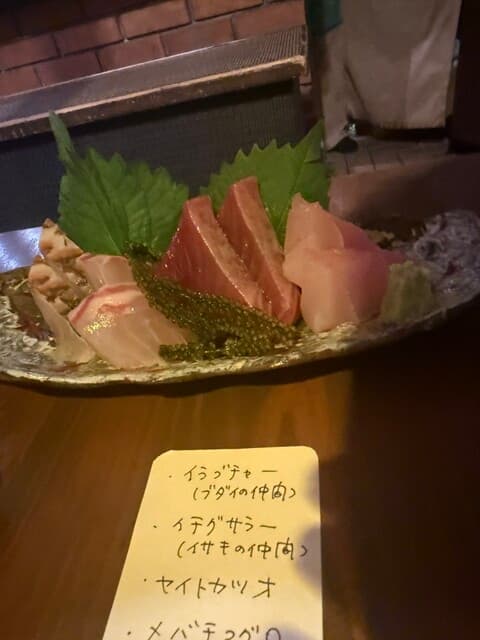 ・イラブチャー
(ブダイの仲間)
・イチグサラー
(イサキの仲間)
・セイトカツオ
・メバチマグロ